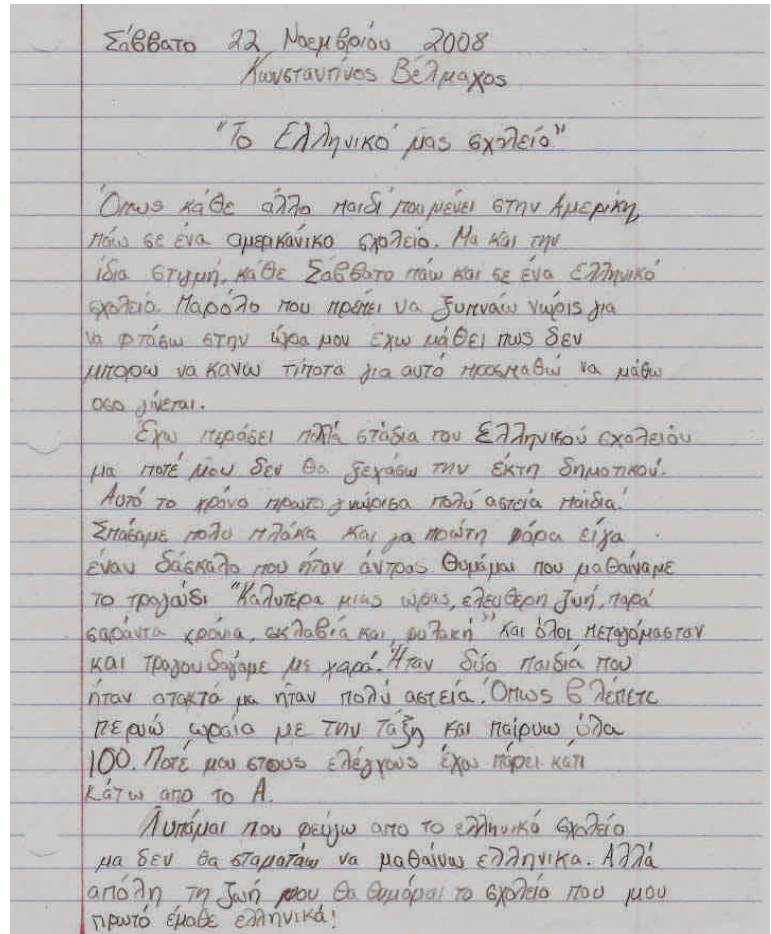 Σάββατο 22 Νοεμβρίου 2008
Κωνσταντίνος Βέλμαχος
"Το Ελληνικό μας σχολείο"
Όπως κάθε άλλο παιδί που μένει στην Αμερική,
πάω σε ένα αμερικάνικο σχολείο. Μα και την
ίδια στιγμή, κάθε Σάββατο πάω και σε ένα Ελληνικό
σχολείο. Παρόλο που πρέπει να ξυπνάω νωρίς για
να φτάσω στην ώρα μου έχω μάθει πως δεν
μπορω να κανω τίποτα για αυτό προσπαθώ να μάθω
οσο γίνεται.
Εχω περάσει πολλά στάδια του Ελληνικού σχολειού
μα ποτέ μου δεν θα ξεχάσω την έκτη δημοτικού.
Αυτό το χρόνο πρωτο γνώρισα πολύ αστεία παιδια.
Σπάσαμε πολυ πλάκα και για πρώτη φόρα είχα
έναν δάσκαλο που ήταν άντρας Θυμάμαι που μαθαίναμε
το τραγούδι "Καλυτερα μιας ώρας, ελευθερη ζωή, παρά
σαράντα χρόνια, σκλαβία και, φυλακή" και όλοι πεταγόμασταν
και τραγουδαγαμε με χαρά. Ήταν δύο παιδιά που
ήταν ατακτά μα ήταν πολύ αστεία. Όπως βλέπετε
περνώ ωραία με την τάξη και παίρνω όλα
100. Ποτέ μου στους ελέγχους έχω πάρει κάτι
κάτω απο το Α.
Λυπάμαι που φεύγω απο το ελληνικό σχολείο
μα δεν θα σταματάω να μαθαίνω ελληνικα. Αλλά
απόλη τη ζωή μου θα θυμάμαι το σχολείο που μου
πρωτό έμαθε ελληνικά!